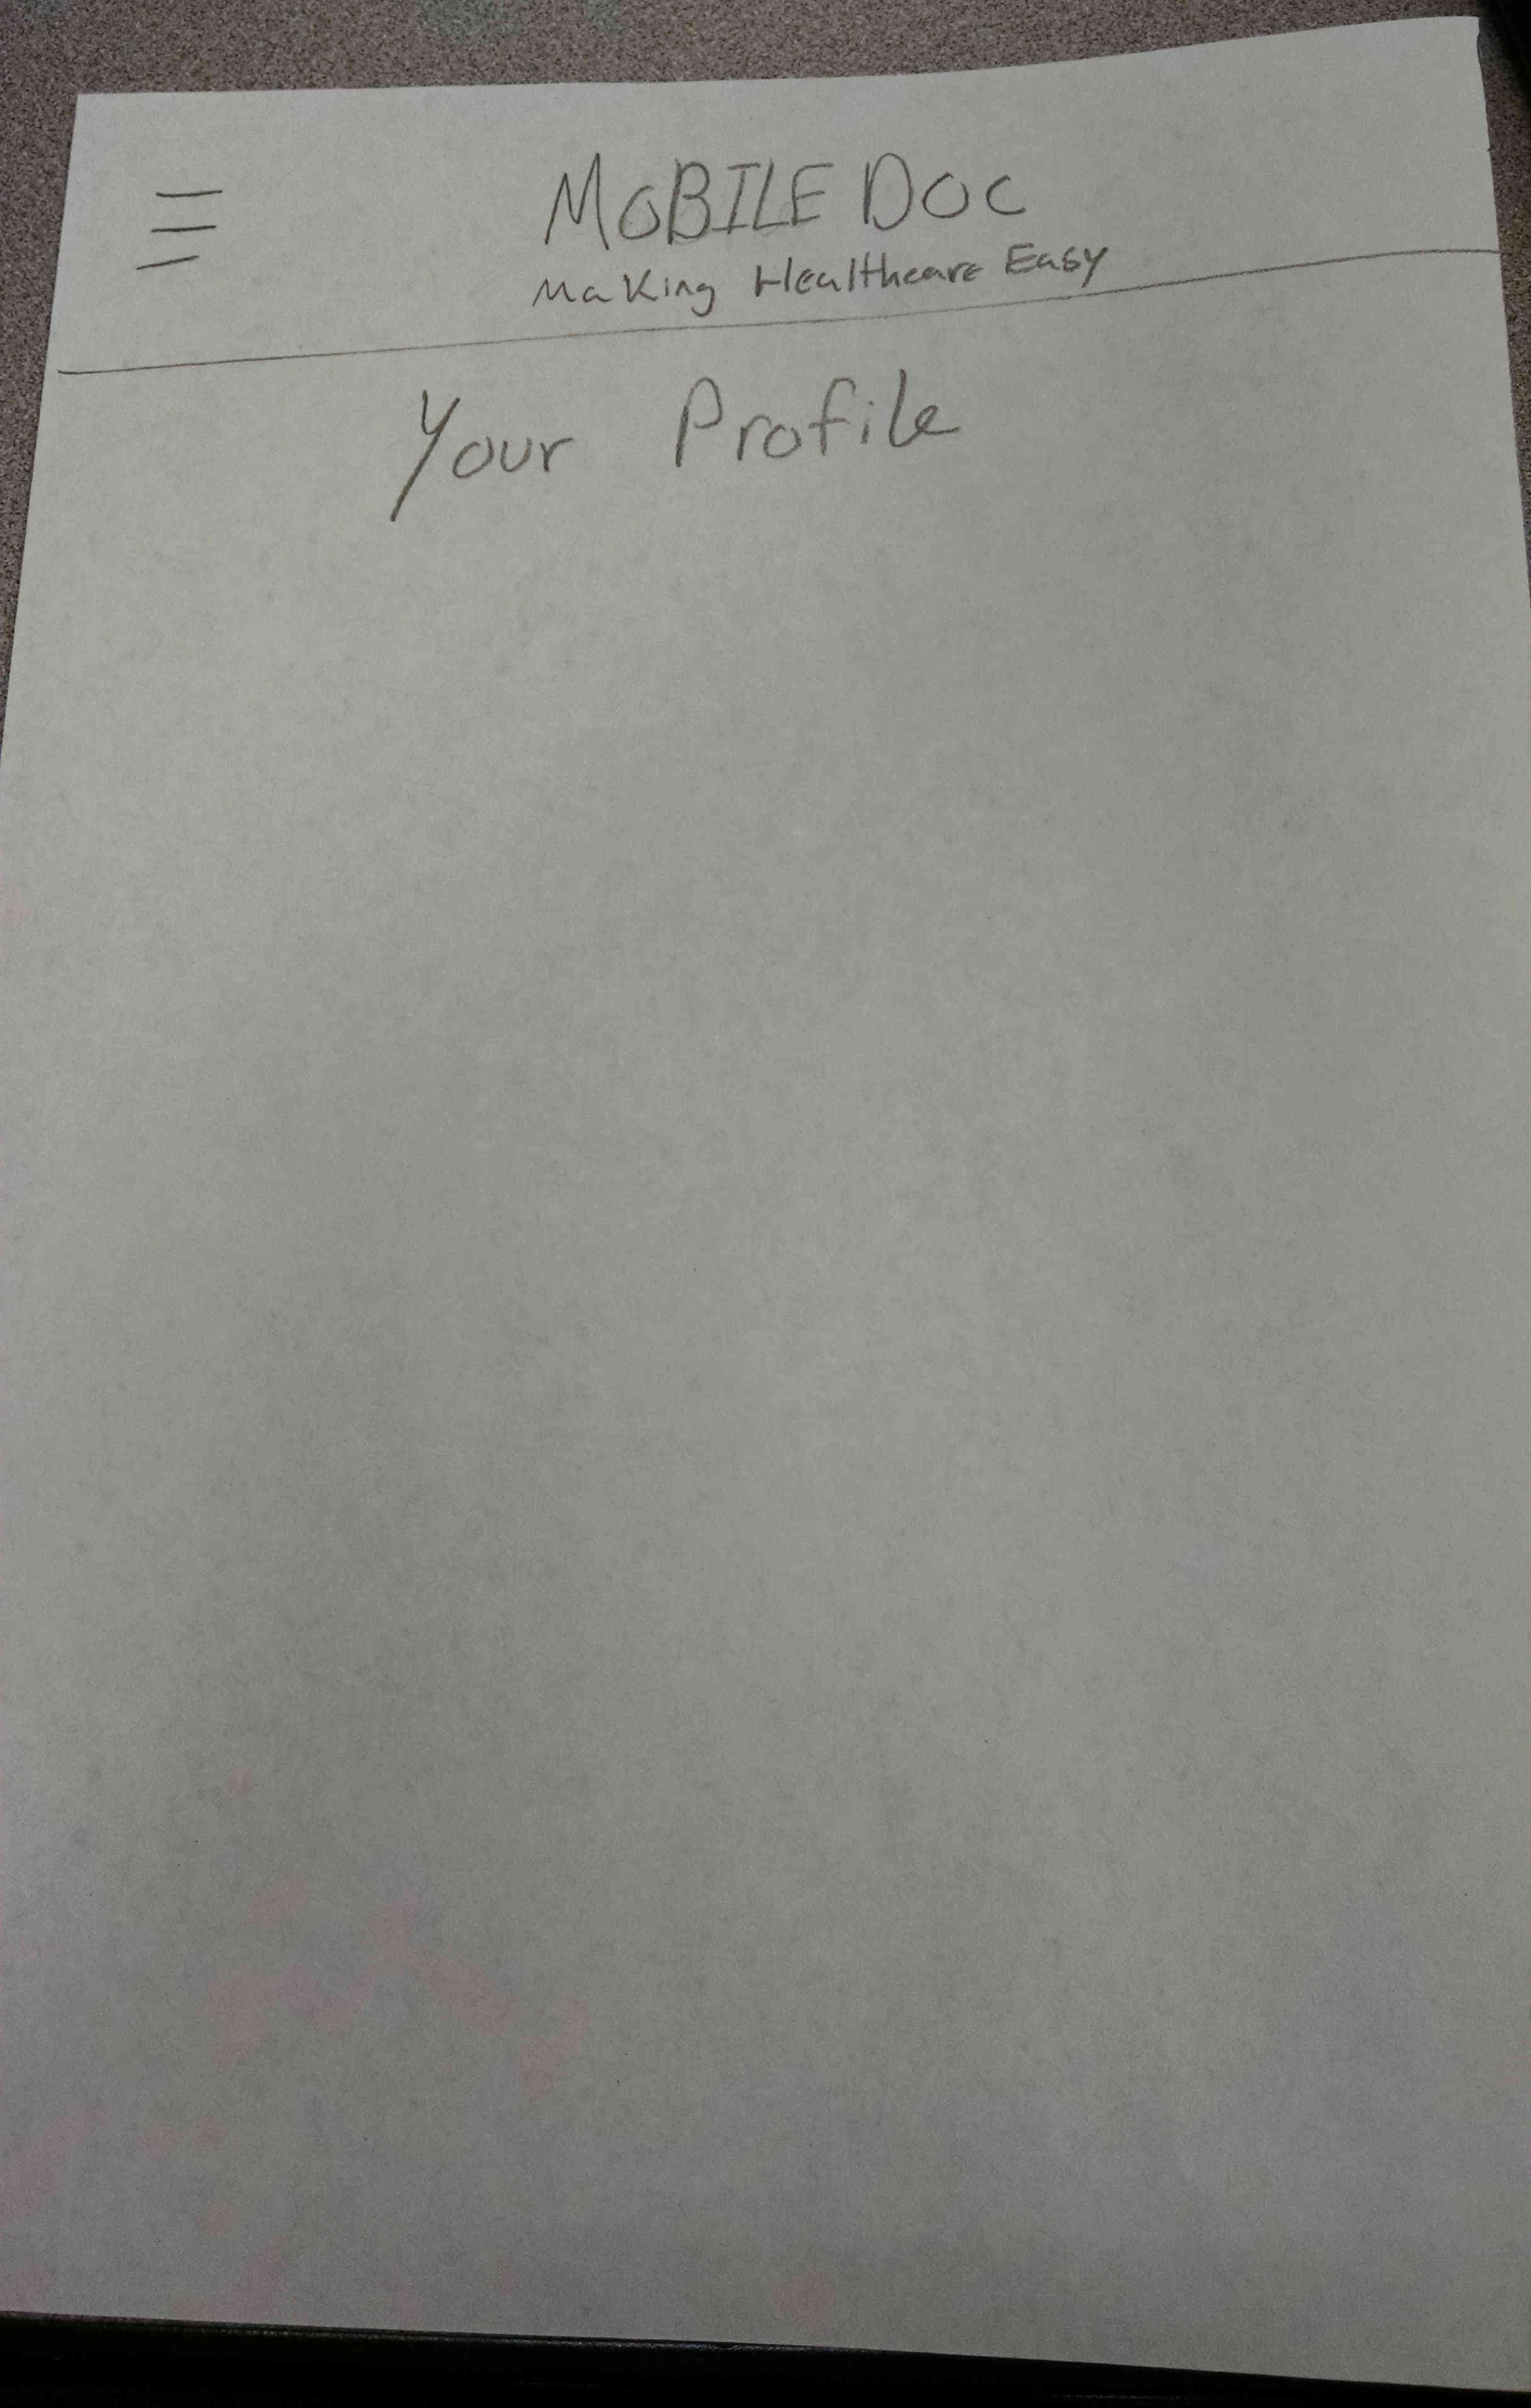 MOBILE DOC
Making Healthcare Easy
Your Profile